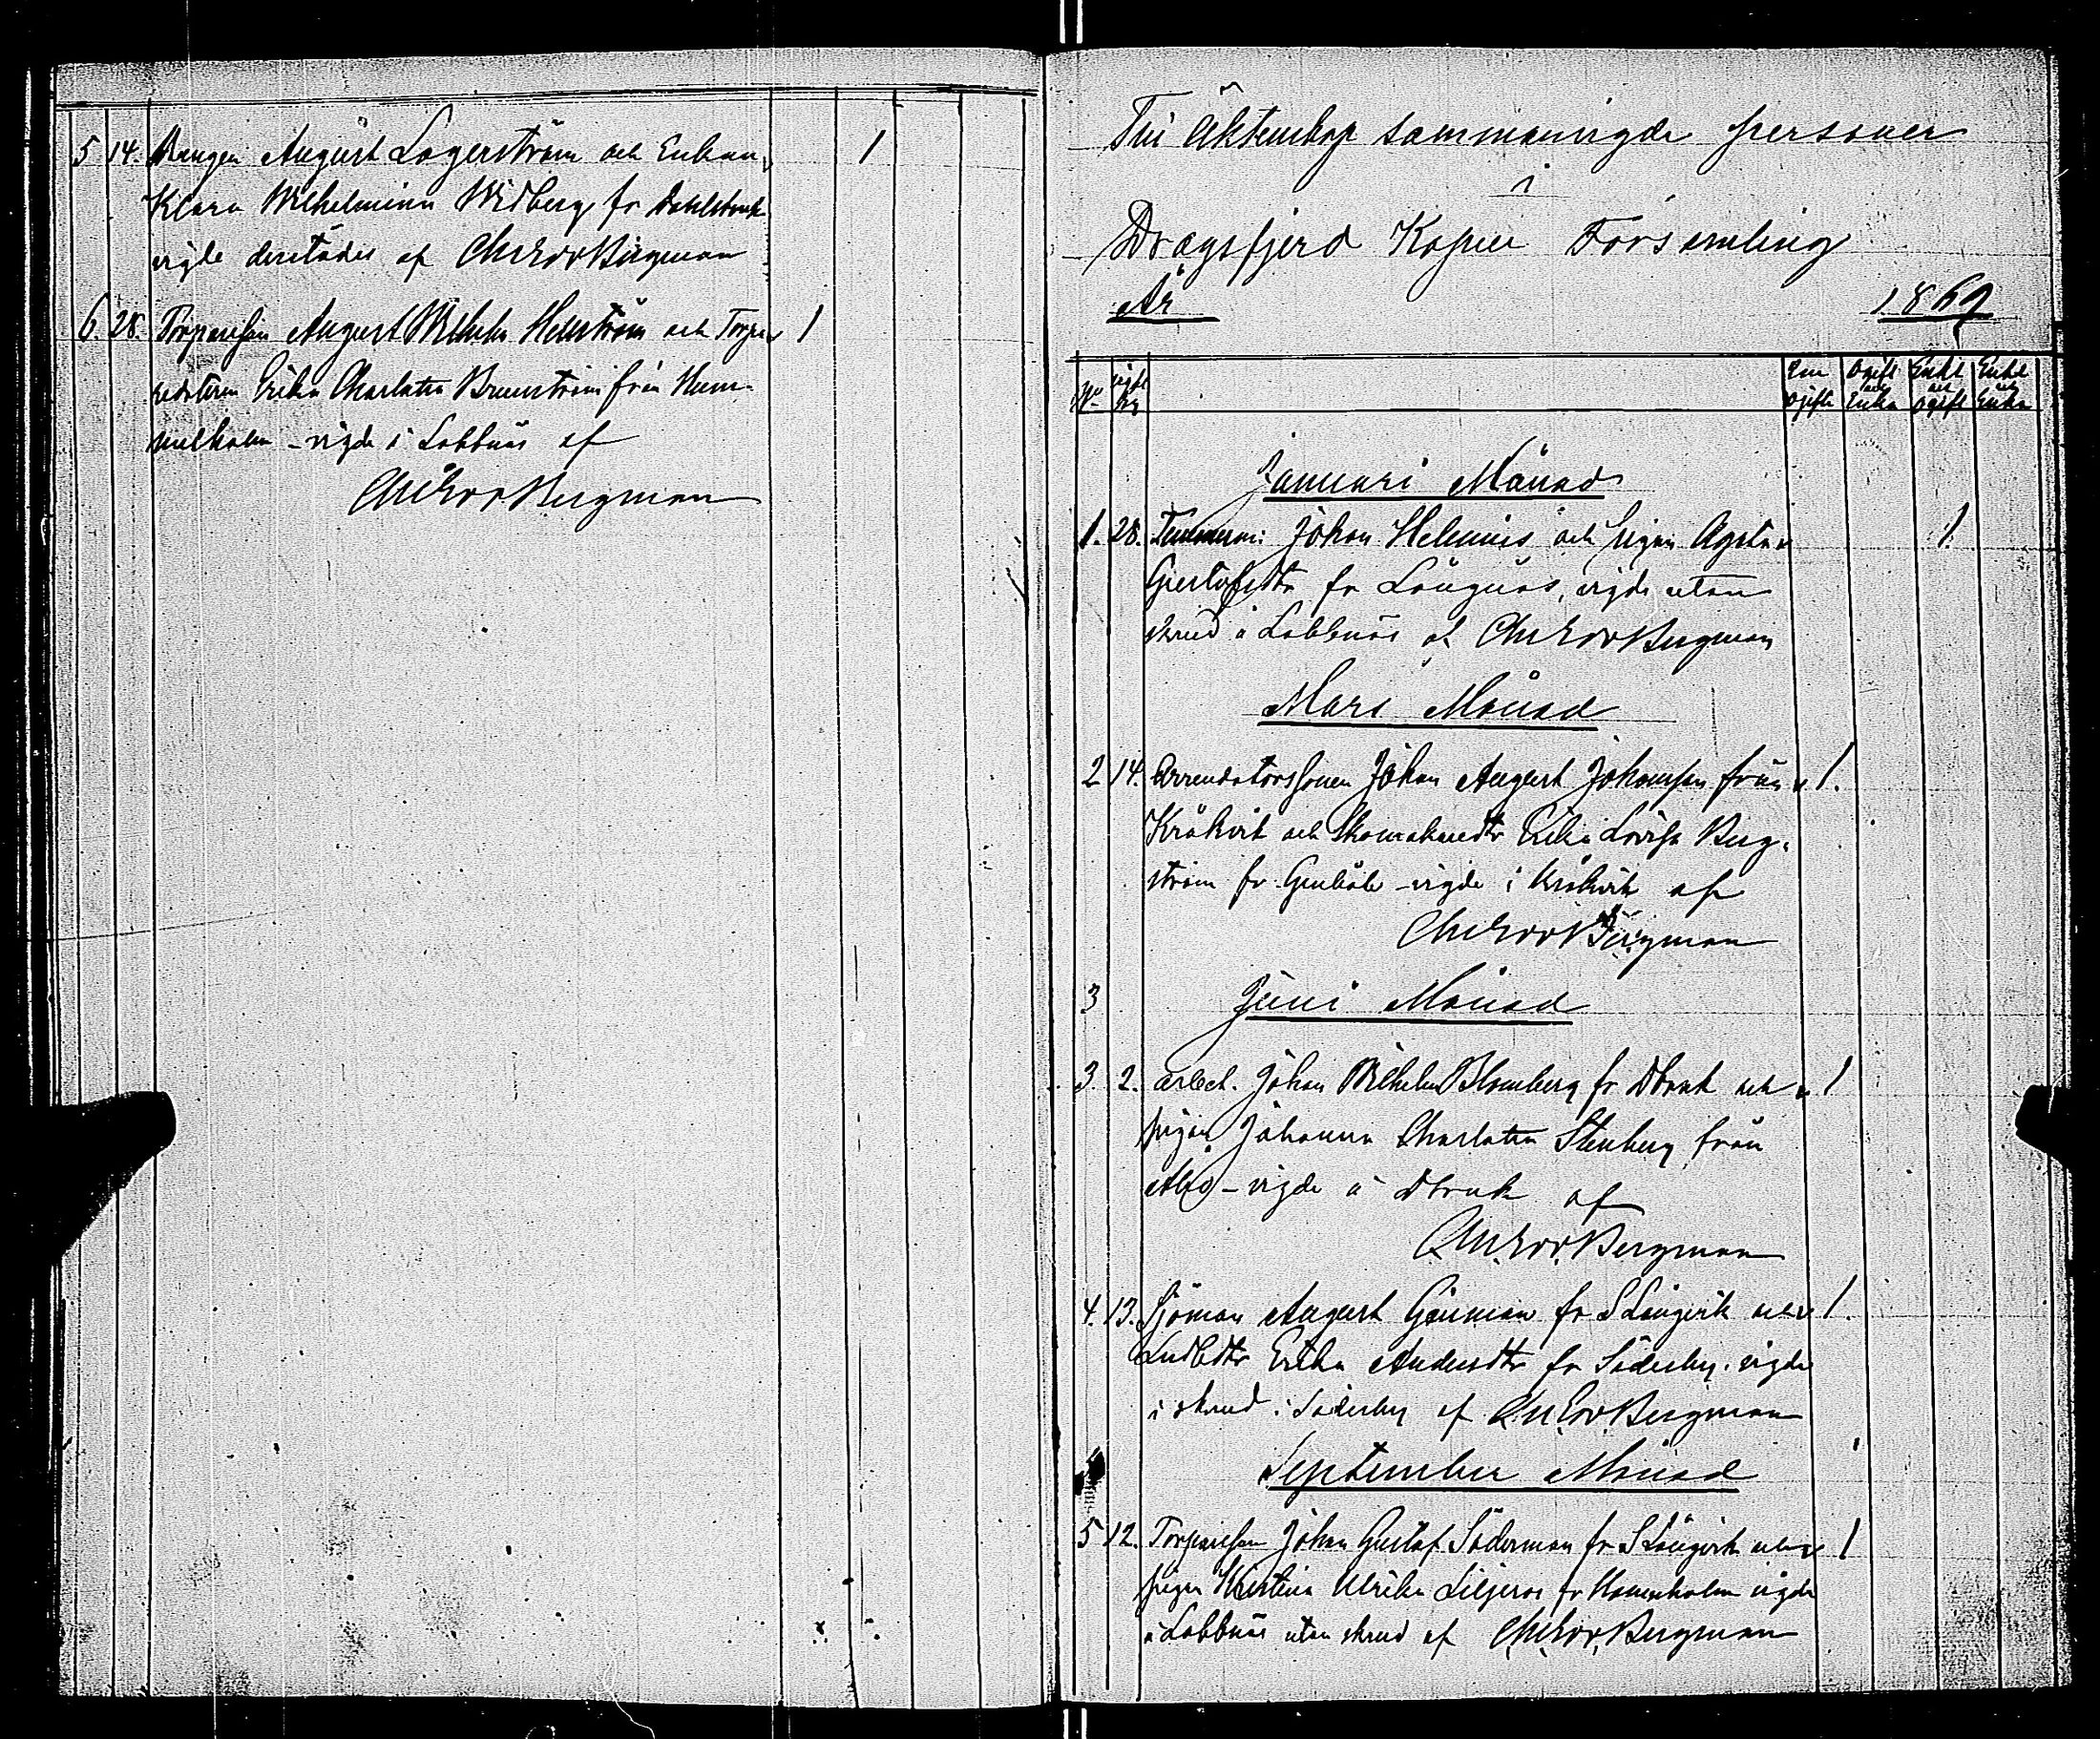 5 14. Drengen August Lagerström och Enkan 1
Klara Wilhelmina Widberg fr Dahlsbruk
vigde derstädes af Bergman
6. 28. Torparesson August Wilhelm Hellström och Torpa- 1
redottren Erika Charlotta Brunström från Hum-
melholm - vigde i Labbnäs af
Bergman
Till Äktenskap sammanvigde personer
i
Dragsfjerd Kapell Församling
År 1869
No vigde dag Em ogifte Ogift och Enka Enkl och ogift Enkl och Enka
Januari Månad
1. 28. Johan Helenius och pigan Agata 1
Gustafsdtr fr Långnäs, vigde utan
skrud å Labbnäs af Bergman
Mars Månad
2 14. Arrendatorssonen Johan August Johansson från 1.
Kråkvik och Skomakaredtr Erika Lovisa Berg-
ström fr Genböle - vigde i Kråkvik af
Bergman
3 Juni Månad
3. 2. arbet. Johan Wilhelm Blomberg fr Dbruk och 1
pigan Johanna Charlotta Stenberg från
Åbo - vigde å Dbruk af
Bergman
4. 13. Sjöman August fr S Långvik och 1.
Erika Andersdtr fr Söderby. vigde
i skrud i Söderby af Bergman
September Månad
5 12. Torparesson Johan Gustaf Söderman fr S Långvik och 1
pigan Ulrika Liljeros fr vigde
å Labbnäs utan skrud af Bergman